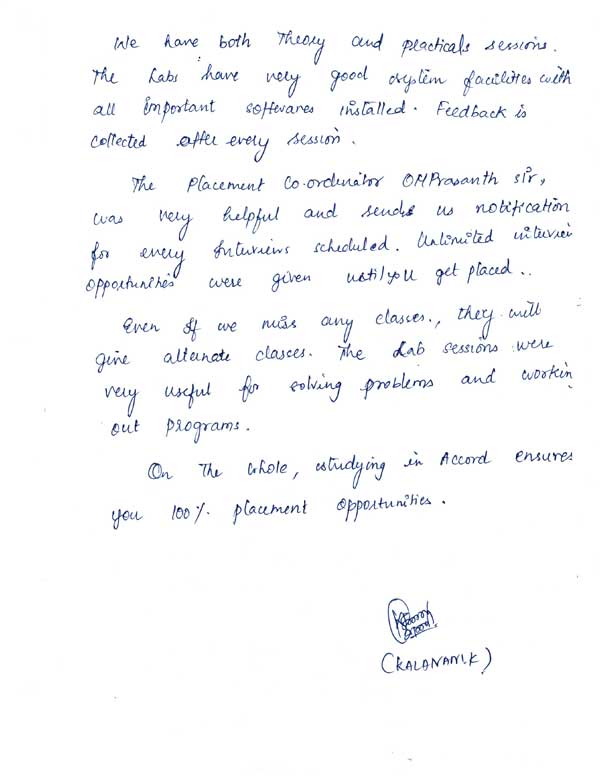 We have both Theory and practicals sessions.
The Labs have very good system facilities with
all important softwares installed. Feedback is
collected after every session.
The Placement Co-ordinator OMPrasanth sir,
was very helpful and sends us notification
for every Interviews scheduled. Unlimited interview
opportunities were given until you get placed..
Even If we miss any classes., they will
give alternate classes. The Lab sessions were
very useful for solving problems and workin
out programs.
On The whole, studying in Accord ensures
you 100% placement opportunities.
(KALAVANI.K)